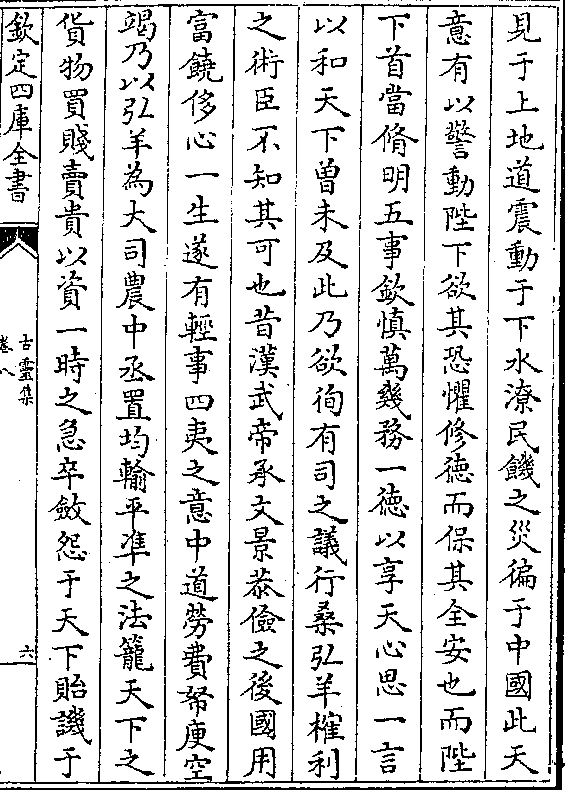 見于上地道震動于下水潦民饑之災徧于中國此天
意有以警動陛下欲其恐懼修徳而保其全安也而陛
下首當脩明五事欽慎萬幾務一徳以享天心思一言
以和天下曽未及此乃欲徇有司之議行桑弘羊榷利
之術臣不知其可也昔漢武帝承文景恭儉之後國用
富饒侈心一生遂有輕事四夷之意中道勞費帑庾空
竭乃以弘羊為大司農中丞置均輸平凖之法籠天下之
貨物買賤賣貴以資一時之急卒斂怨于天下貽譏于
欽定四庫全書
古靈集
卷八
六